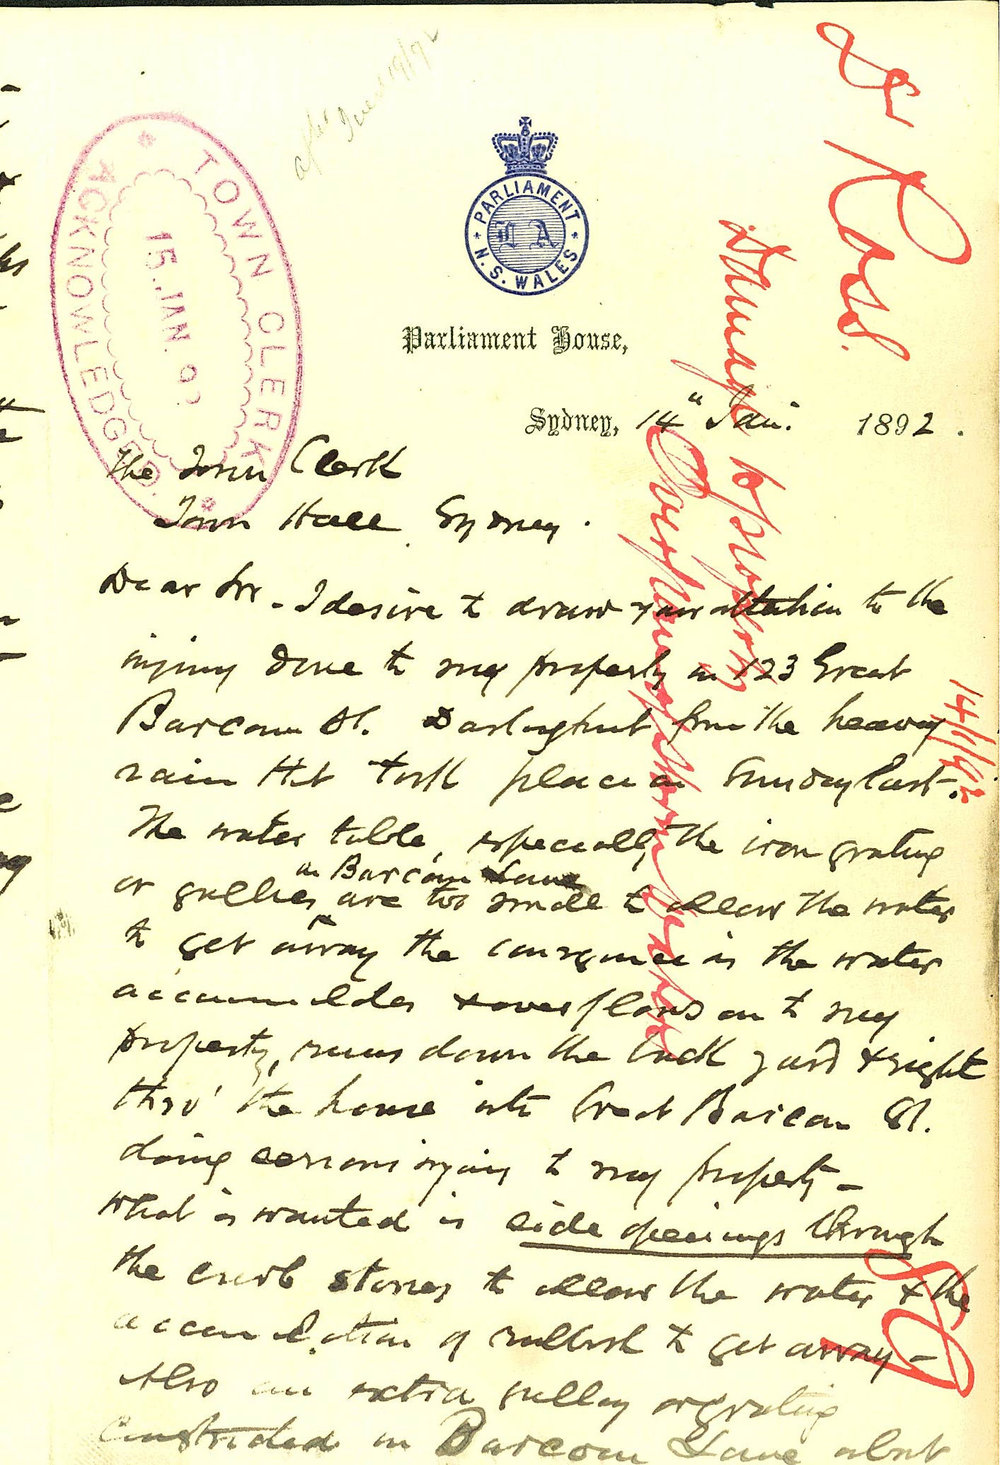 Dr Ross.
Damage to property
Overflow of Storm Water
14/1/92
TOWN CLERK
15. JAN. 92
ACKNOWLEDGED.
PARLIAMENT
L A
N.S. WALES
Parliament House,
Sydney, 14" Jan. 1892.
The Town Clerk
Town Hall Sydney.
Dear Sir - I desire to draw your attention to the
injury done to my property in 123 Great
Barcom St. Darlinghurst from the heavy
rain tht took place on Sunday last.
The water table, especially the iron grating
in Barcom Lane
or gullies are too small to allow the water
to get away the consequence is the water
accumulates & overflows on to my
property, runs down the back yard & right
thro' the house into Great Barcom St.
doing serious injury to my property -
what is wanted is side openings through
the curb stones to allow the water & the
accumulation of rubbish to get away -
Also an extra gulley or grating
constructed in Barcom Lane about